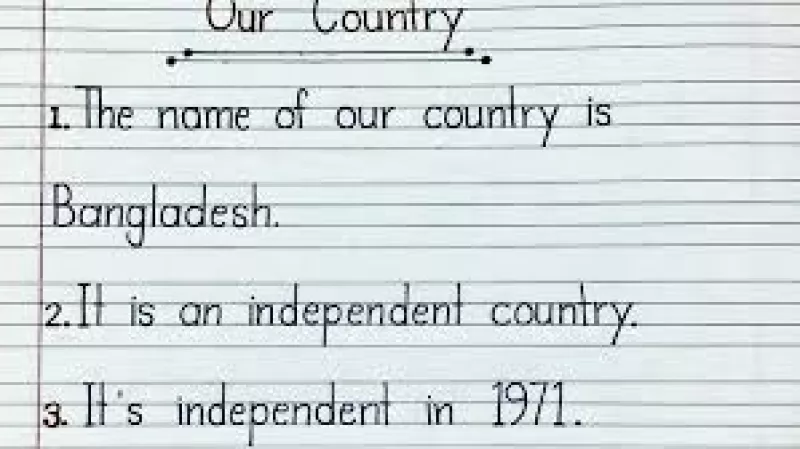 Our Country
1. The name of our country is
Bangladesh.
2. It is an independent country.
3. It's independent in 1971.